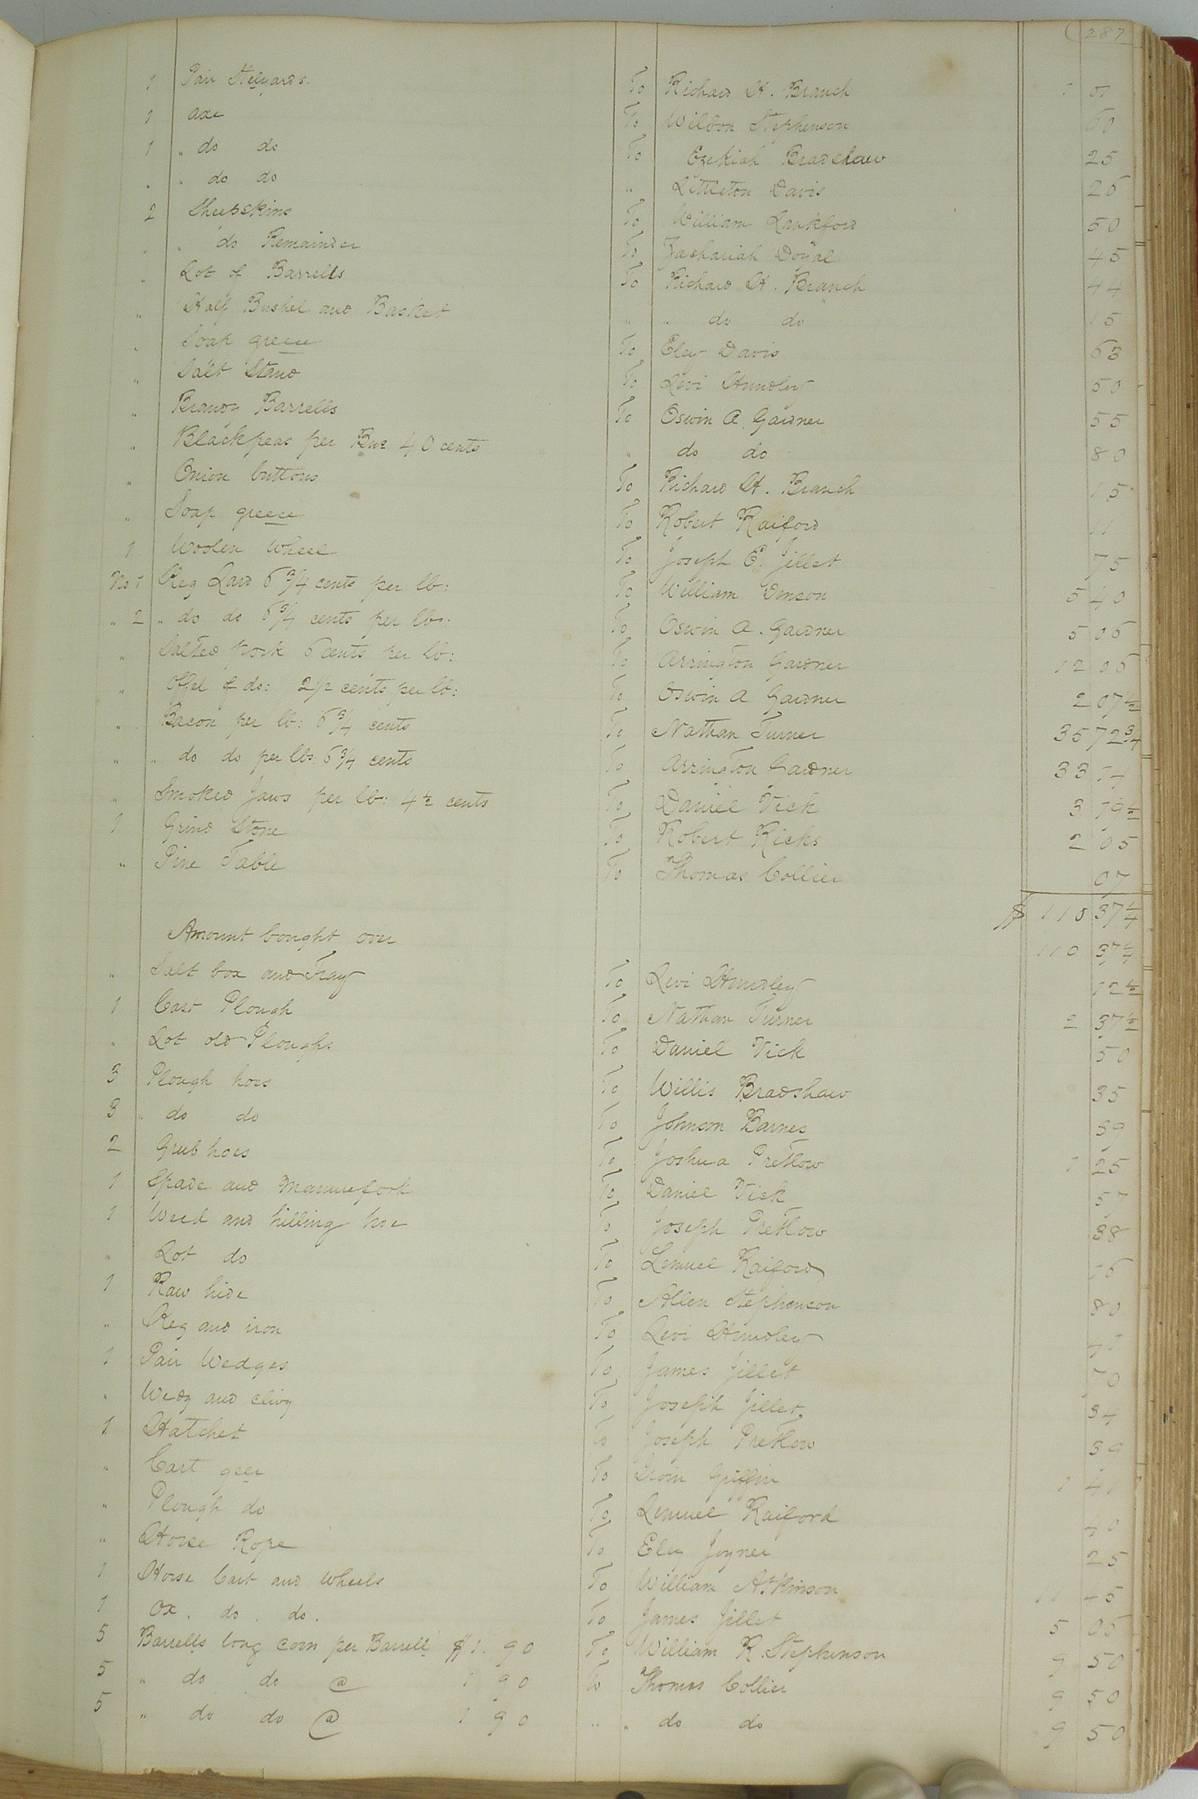 (287
1 Pair Stelyards. To Richard H. Branch 1 01
1 axe To Wilson Stephenson 60
1 " do do To Ezekiah Bradshaw 25
" " do do " Littleton Davis 25
2 Sheepskins To William Lankford 50
" " do Remainder To Zachariah Doyal 45
" Lot of Barrells To Richard H. Branch 44
" Half Bushel and Basket " " do do 15
" Soap greece To Eley Davis 63
" Salt Stand To Levi Hundley 50
" Brandy Barrells To Oswin A. Gardner 55
" Blackpeas per Bus. 40 cents " do do 80
" Onion buttons To Richard H. Branch 15
" Soap greece To Robert Raiford 11
1 Woolen Wheel To Joseph E. Jillet 75
No 1 Keg Lard 6 3/4 cents per lb: To William Vinson 5 40
" 2 " do do 6 3/4 cents per lbs. To Oswin A. Gardner 5 06
" Salted pork 6 cents per lb: To Arrington Gardner 12 06
" Offel of do: 2 1/2 cents per lb: To Oswin A Gardner 2 07 1/2
" Bacon per lb: 6 3/4 cents To Nathan Turner 35 72 3/4
" " do do per lbs 6 3/4 cents To Arrington Gardner 33 14
" Smoked Jaws per lb: 4 1/2 cents To Daniel Vick 3 19 1/2
1 Grind Stone To Robert Ricks 2 05
" Pine Table To Thomas Collier 07
$ 110 37 1/4
Amount bought over 110 37 1/4
" Salt box and Tray To Levi Hundley 12 1/2
1 Cast Plough To Nathan Turner 2 37 1/2
" Lot old Ploughs To Daniel Vick 50
3 Plough hoes To Willis Bradshaw 35
3 " do do To Johnson Barnes 39
2 Grub hoes To Joshua Pretlow 1 25
1 Spade and Mannuefork To Daniel Vick 57
1 Weed and hilling hoe To Joseph Pretlow 38
" Lot do To Lemuel Raiford 15
1 Raw hide To Allen Stephenson 80
" Keg and iron To Levi Hundley
1 Pair Wedges To James Jillet 70
" Wedg and clivy To Joseph Jillet 34
1 Hatchet To Joseph Pretlow 39
" Cart geer To Griffin 1 41
" Plough do To Lemuel Raiford 40
" Horse Rope To Eley Joyner 25
1 Horse Cart and Wheels To William Atkinson 11
1 Ox. do. do. To James Jillet 5 05
5 Barrells long corn per Barrell $1. 90 To William R. Stephenson 9 50
5 " do do @ 1 90 To Thomas Collier 9 50
5 " do do @ 1 90 " " do do 9 50